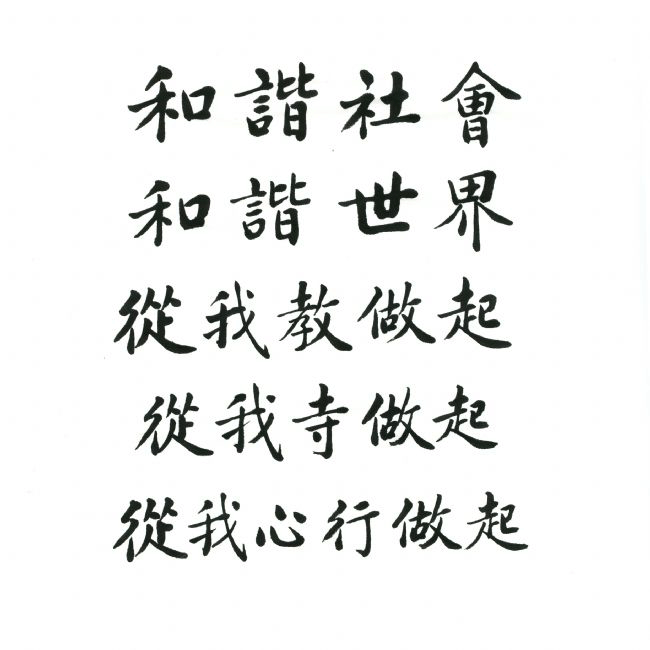 和諧社會
和諧世界
從我教做起
從我寺做起
從我心行做起